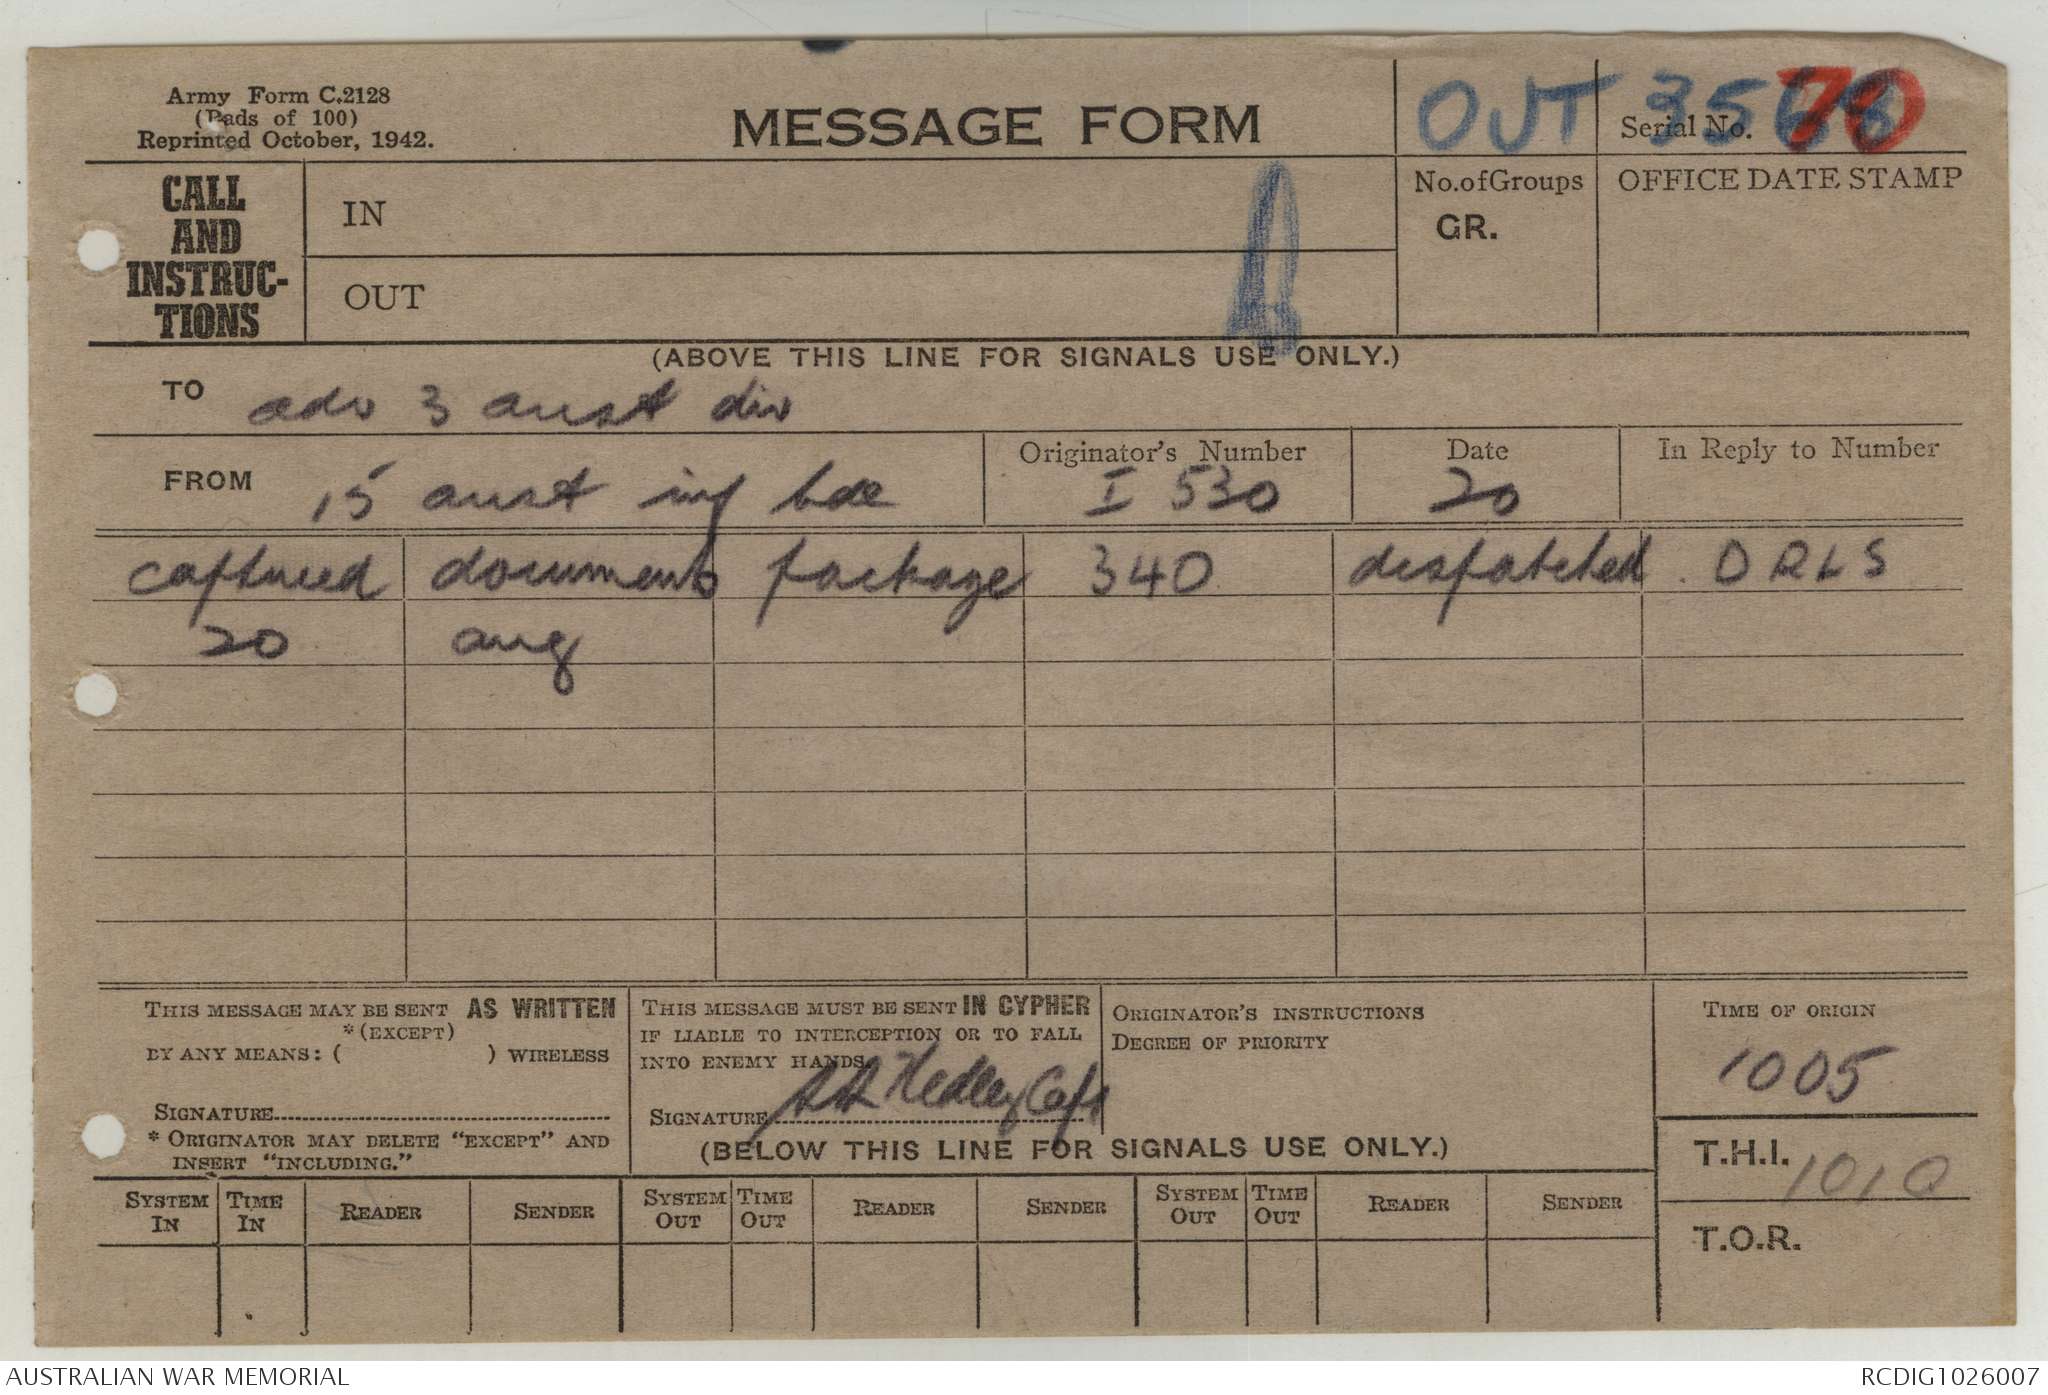 Army Form C.2128
(Pads of 100)
Reprinted October, 1942.
MESSAGE FORM
OUT
Serial No. 35 70
CALL
AND
INSTRUC-
TIONS
IN
OUT
No. of Groups
GR.
OFFICE DATE STAMP
(ABOVE THIS LINE FOR SIGNALS USE ONLY.)
TO adv 3 aust div
FROM 15 aust inf bde
Originator's Number
I 530
Date
20
In Reply to Number
captured documents package 340 despatched DRLS
20 aug
THIS MESSAGE MAY BE SENT AS WRITTEN
*(EXCEPT)
BY ANY MEANS: ( ) WIRELESS
SIGNATURE
* ORIGINATOR MAY DELETE "EXCEPT" AND
INSERT "INCLUDING."
THIS MESSAGE MUST BE SENT IN CYPHER
IF LIABLE TO INTERCEPTION OR TO FALL
INTO ENEMY HANDS.
SIGNATURE Hedley Capt
ORIGINATOR'S INSTRUCTIONS
DEGREE OF PRIORITY
TIME OF ORIGIN
1005
(BELOW THIS LINE FOR SIGNALS USE ONLY.)
T.H.I. 1010
T.O.R.
SYSTEM IN TIME IN READER SENDER SYSTEM OUT TIME OUT READER SENDER SYSTEM OUT TIME OUT READER SENDER
AUSTRALIAN WAR MEMORIAL
RCDIG1026007